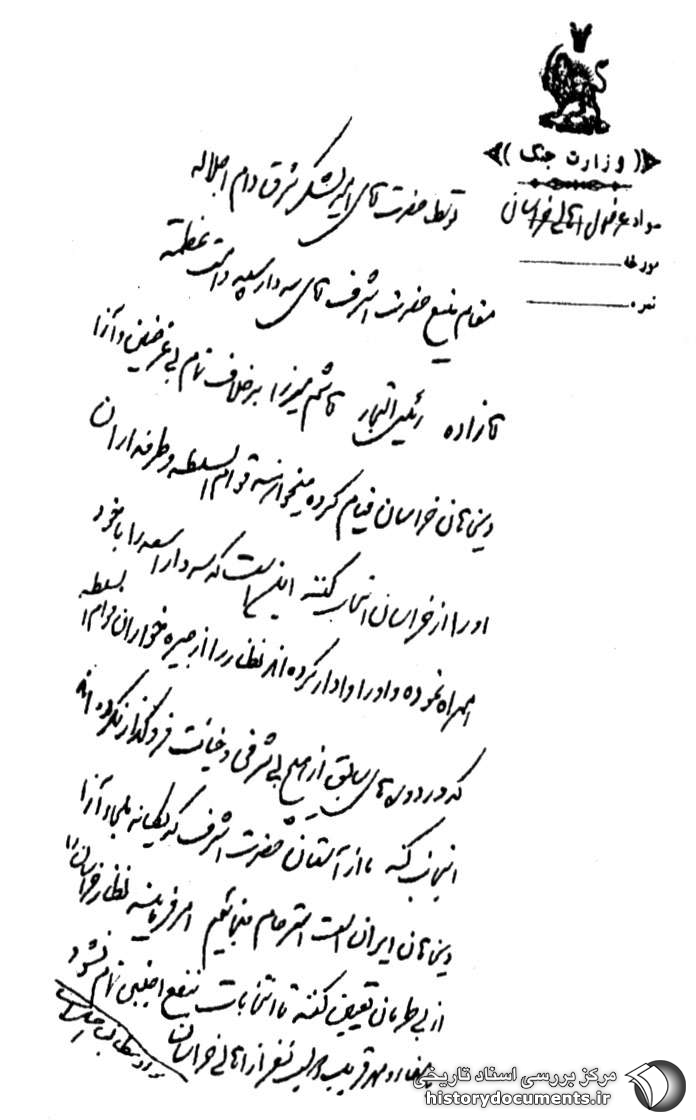 وزارت جنگ
سواد عرضحال اهالی خراسان
مورخه
نمره
توسط حضرت آقای امیر لشکر شرق دام اجلاله
مقام منیع حضرت اشرف آقای سردار سپه دامت عظمته
آقازاده رئیس التجار قاسم میرزا برخلاف تمام بی غرضین و آزا
دیخواهان خراسان قیام کرده میخواهند قوام السلطنه و طرفداران
او را از خراسان انتخاب کنند این است که سردار اسعد را با خود
همراه نموده و او را وادار کرده اند نظار را از جیره خواران قوام السلطنه
که در دوره های سابق از هیچ بی شرفی و خیانت فروگذار نکرده اند
انتخاب کنند ما از آستان حضرت اشرف که یگانه ملجاء آزا
دیخواهان ایران است استرحام مینمائیم امر فرمایند نظار خراسان را
از بی طرفان تعیین کنند تا انتخابات بنفع اجنبی تمام نشود
امضاء و مهر قریب نفر از اهالی خراسان
سواد مطابق اصل است
مرکز بررسی اسناد تاریخی
historydocuments.ir